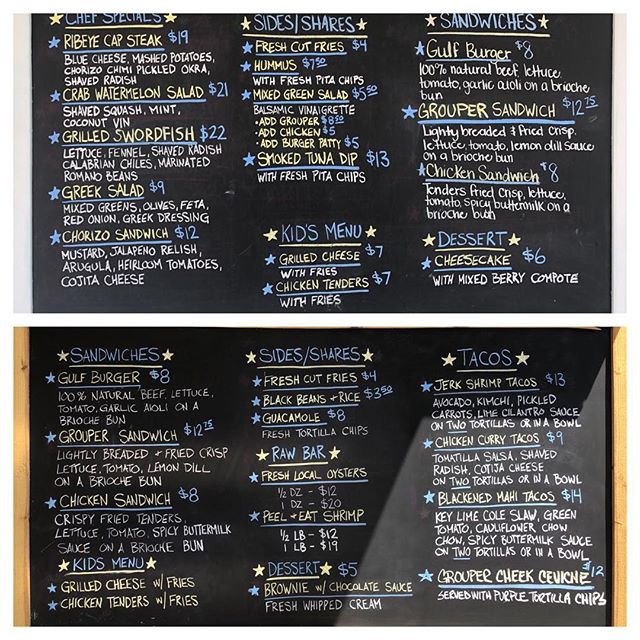 CHEF SPECIALS
RIBEYE CAP STEAK $19
BLUE CHEESE, MASHED POTATOES,
CHORIZO CHIMI PICKLED OKRA,
SHAVED RADISH
CRAB WATERMELON SALAD $21
SHAVED SQUASH, MINT,
COCONUT VIN
GRILLED SWORDFISH $22
LETTUCE, FENNEL, SHAVED RADISH
CALABRIAN CHILES, MARINATED
ROMANO BEANS
GREEK SALAD $9
MIXED GREENS, OLIVES, FETA,
RED ONION, GREEK DRESSING
CHORIZO SANDWICH $12
MUSTARD, JALAPENO RELISH,
ARUGULA, HEIRLOOM TOMATOES,
COJITA CHEESE
SIDES/SHARES
FRESH CUT FRIES $4
HUMMUS $7.50
WITH FRESH PITA CHIPS
MIXED GREEN SALAD $5.50
BALSAMIC VINAIGRETTE
-ADD GROUPER $8.50
-ADD CHICKEN $5
-ADD BURGER PATTY $5
SMOKED TUNA DIP $13
WITH FRESH PITA CHIPS
KID'S MENU
GRILLED CHEESE $7
WITH FRIES
CHICKEN TENDERS $7
WITH FRIES
SANDWICHES
Gulf Burger $8
100% natural beef, lettuce,
tomato, garlic aioli on a brioche
bun
GROUPER SANDWICH $12.75
Lightly breaded & fried crisp,
lettuce, tomato, lemon dill sauce
on a brioche bun
Chicken Sandwich $8
Tenders fried crisp, lettuce,
tomato, spicy buttermilk on a
brioche bun
DESSERT
CHEESECAKE $6
WITH MIXED BERRY COMPOTE
SANDWICHES
GULF BURGER $8
100% NATURAL BEEF, LETTUCE,
TOMATO, GARLIC AIOLI ON A
BRIOCHE BUN
GROUPER SANDWICH $12.75
LIGHTLY BREADED + FRIED CRISP
LETTUCE, TOMATO, LEMON DILL
ON A BRIOCHE BUN
CHICKEN SANDWICH $8
CRISPY FRIED TENDERS,
LETTUCE, TOMATO, SPICY BUTTERMILK
SAUCE ON A BRIOCHE BUN
KIDS MENU
GRILLED CHEESE W/ FRIES
CHICKEN TENDERS W/ FRIES
SIDES/SHARES
FRESH CUT FRIES $4
BLACK BEANS + RICE $3.50
GUACAMOLE $8
FRESH TORTILLA CHIPS
RAW BAR
FRESH LOCAL OYSTERS
1/2 DZ - $12
1 DZ - $20
PEEL + EAT SHRIMP
1/2 LB - $12
1 LB - $19
DESSERT $5
BROWNIE W/ CHOCOLATE SAUCE
FRESH WHIPPED CREAM
TACOS
JERK SHRIMP TACOS $13
AVOCADO, KIMCHI, PICKLED
CARROTS, LIME CILANTRO SAUCE
ON TWO TORTILLAS OR IN A BOWL
CHICKEN CURRY TACOS $9
TOMATILLA SALSA, SHAVED
RADISH, COTIJA CHEESE
ON TWO TORTILLAS OR IN A BOWL
BLACKENED MAHI TACOS $14
KEY LIME COLE SLAW, GREEN
TOMATO, CAULIFLOWER, CHOW
CHOW, SPICY BUTTERMILK SAUCE
ON TWO TORTILLAS OR IN A BOWL
GROUPER CHEEK CEVICHE $12
SERVED WITH PURPLE TORTILLA CHIPS